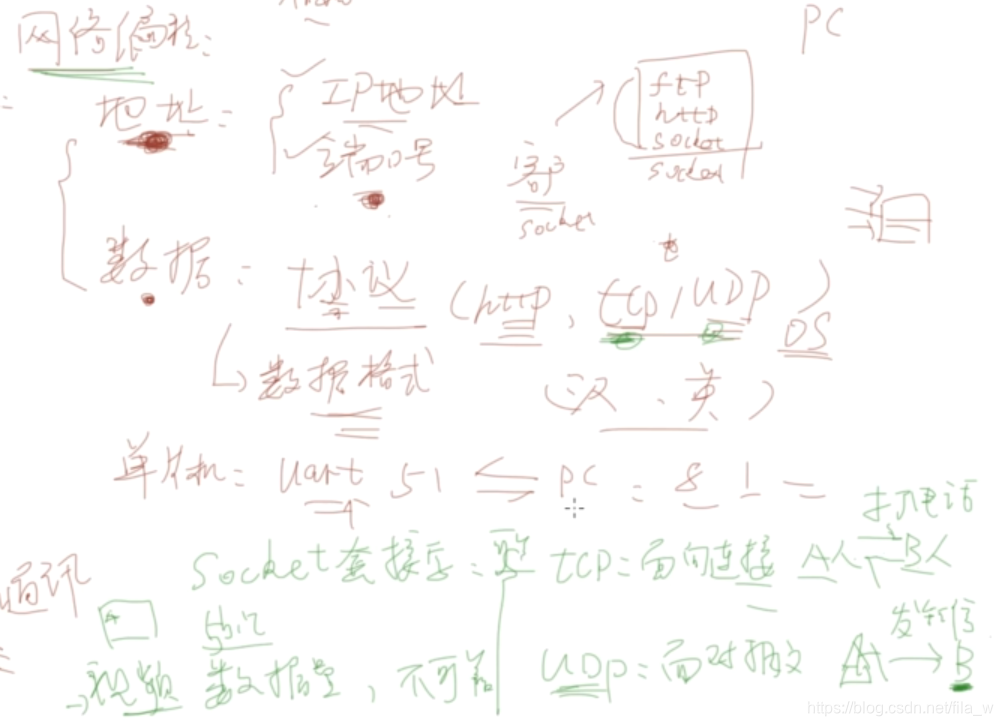 PC
网络编程:
地址: IP地址
端口号
ftp
http
socket
socket
客户
socket
数据: 协议 (http, tcp/UDP) OS
数据格式
(汉、英)
单片机: uart 51 PC : 8 1
打电话
通讯
Socket套接字: tcp: 面向连接 A人 B人
发短信
视频 数据量, 不可靠 UDP: 面对报文 A B
https://blog.csdn.net/fila_w